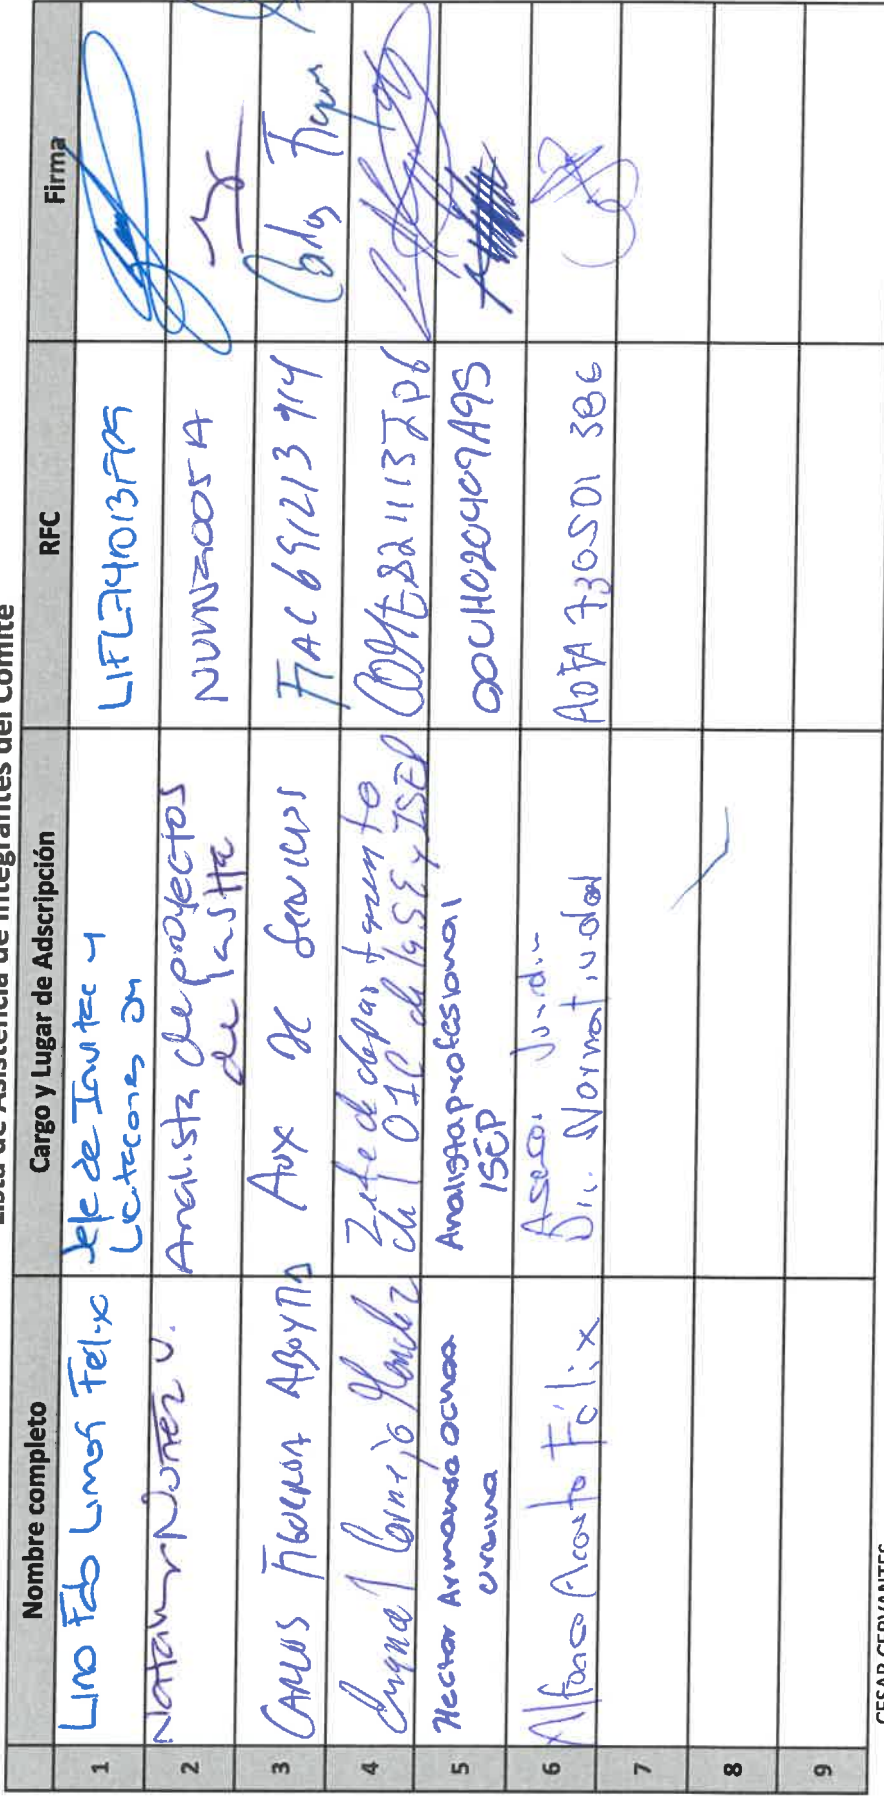 Lista de Asistencia de Integrantes del Comité
Nombre completo Cargo y Lugar de Adscripción RFC Firma
1 Lino Fab Limon Felix Jefe de Invitac y
Licitacones
2 Nuñez V. Analista de proyectos
de la SHa NUVN2005A
3 CARLOS FIGUEROA ABOYTIA Aux de Servicios FIAC691213 914 Carlos
4 Cornejo Jefe de departamento
del OIC de la SE y ISEP
5 Hector Armando Ochoa
Urbina Analista profesional
ISEP OOUH020409A95
6 Alfonso Acosta Félix Asesor
Dir. Normatividad AOFA 730501 3B6
7
8
9
CESAR CERVANTES